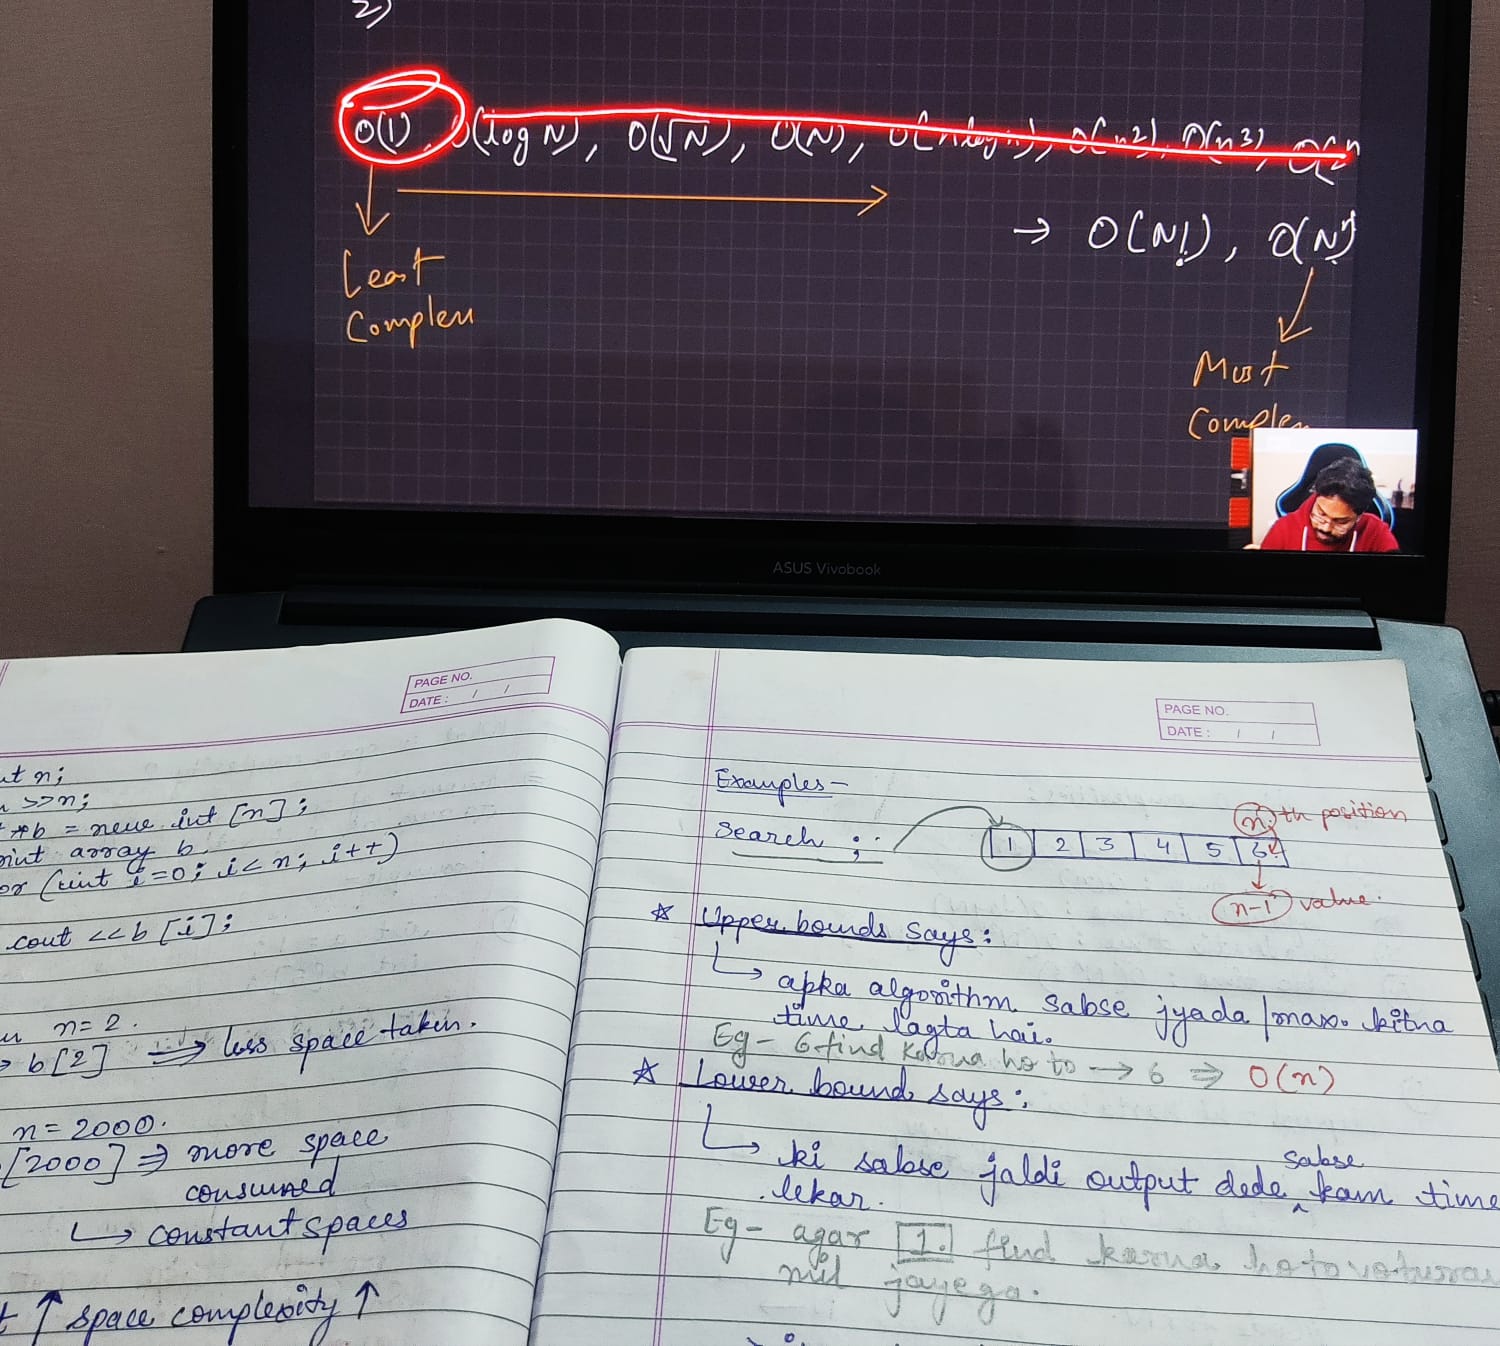 2)
O(1), O(log N), O(√N), O(N), O(n log n), O(n2), O(n3), O(2^n
→ O(N!), O(N^n)
Least
Complex
Most
Comple
ASUS Vivobook
PAGE NO.
DATE : / /
nt n;
>>n;
*b = new int [n];
int array b
or (int i=0; i<n; i++)
cout <<b[i];
n=2.
b[2] ⇒ less space taken.
n=2000.
[2000] ⇒ more space
consumed
↳ constant spaces
↑ space complexity ↑
PAGE NO.
DATE : / /
Examples-
Search ;
1 2 3 4 5 6
n th position
n-1 value.
* Upper bounds says:
↳ apka algorithm sabse jyada/max. kitna
time lagta hai.
Eg- 6 find karna ho to → 6 ⇒ O(n)
* Lower bound says:
↳ ki sabse jaldi output dede sabse kam time
lekar.
Eg- agar 1. find karna ho to vo
mil jayega.